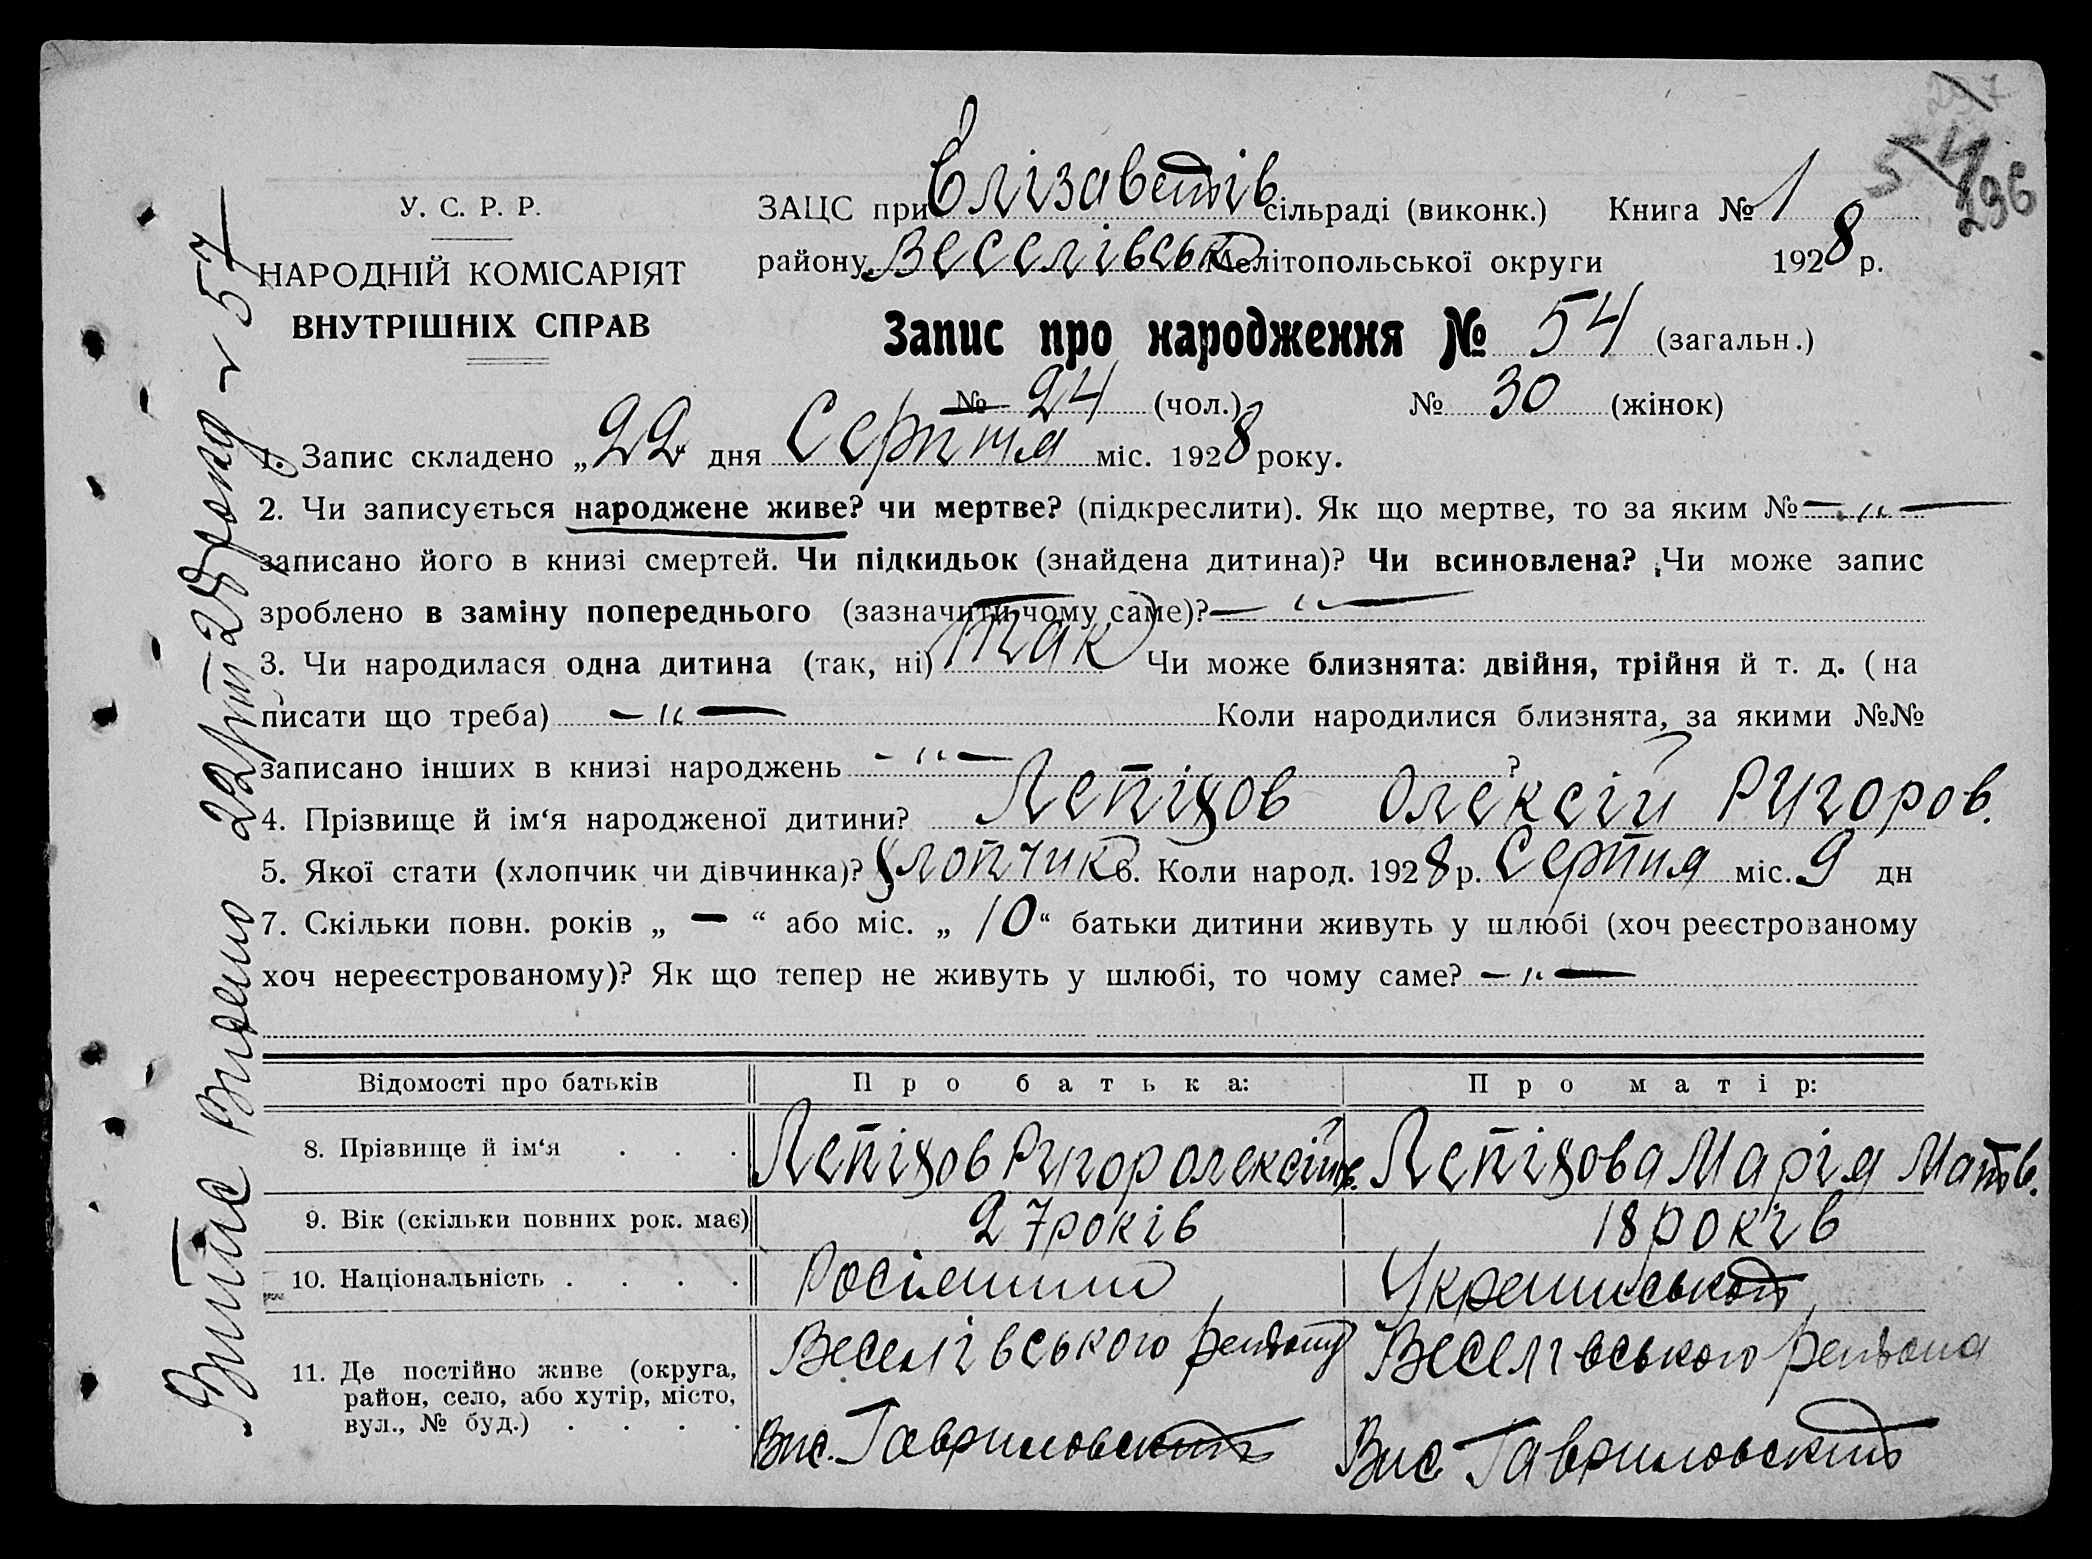 54
296
У. С. Р. Р.
НАРОДНІЙ КОМІСАРІЯТ
ВНУТРІШНІХ СПРАВ
ЗАЦС при Єлізаветів сільраді (виконк.) Книга № 1
району Веселівськ Мелітопольської округи 1928 р.
Запис про народження № 54 (загальн.)
№ 24 (чол.) № 30 (жінок)
1. Запис складено „22“ дня Серпня міс. 1928 року.
2. Чи записується народжене живе? чи мертве? (підкреслити). Як що мертве, то за яким № — „ —
записано його в книзі смертей. Чи підкидьок (знайдена дитина)? Чи всиновлена? Чи може запис
зроблено в заміну попереднього (зазначити чому саме)? — „ —
3. Чи народилася одна дитина (так, ні) Так Чи може близнята: двійня, трійня й т. д. (на
писати що треба) — „ — Коли народилися близнята, за якими №№
записано інших в книзі народжень — „ — ?
4. Прізвище й ім‘я народженої дитини? Лепіхов Олексій Ригоров.
5. Якої стати (хлопчик чи дівчинка)? хлопчик 6. Коли народ. 1928 р. Серпня міс. 9 дн
7. Скільки повн. років „ — “ або міс. „ 10 “ батьки дитини живуть у шлюбі (хоч реєстрованому
хоч нереєстрованому)? Як що тепер не живуть у шлюбі, то чому саме? — „ —
Відомості про батьків Про батька: Про матір:
8. Прізвище й ім‘я . . . Лепіхов Ригор Олексійов. Лепіхова Марія Матв.
9. Вік (скільки повних рок. має) 27 років 18 років
10. Національність . . . . Росіянин Українськ
11. Де постійно живе (округа, район, село, або хутір, місто, вул., № буд.) . . . .
Веселівського району Веселівського района
Вис. Гавриловский Вис Гавриловский
Випис Видано 22/VIII 28 року 54